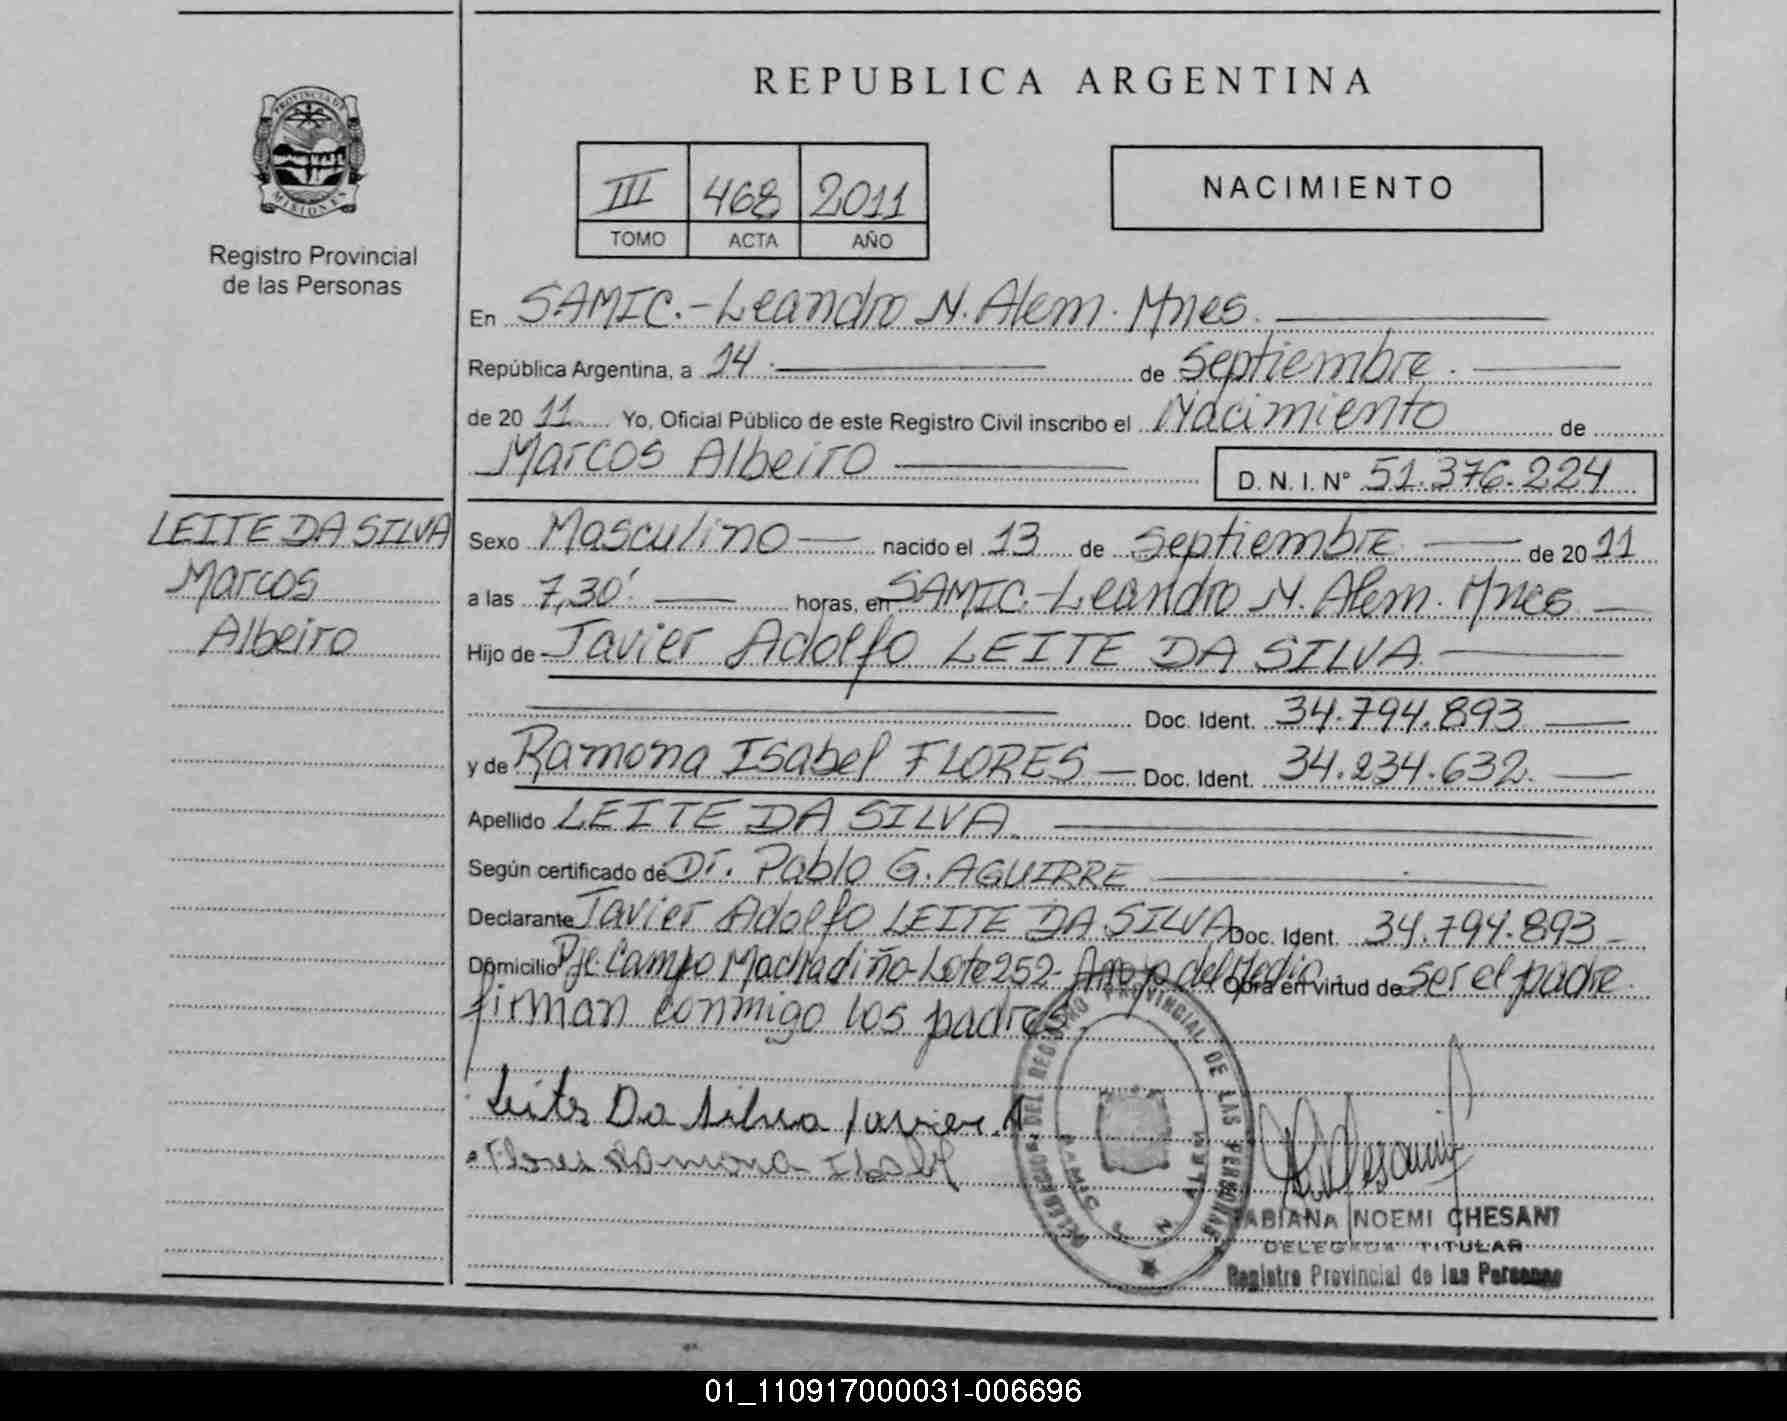 REPUBLICA ARGENTINA
PROVINCIA DE
MISIONES
Registro Provincial
de las Personas
III 468 2011
TOMO ACTA AÑO
NACIMIENTO
En SAMIC.-Leandro N. Alem. Mnes.
República Argentina, a 14 de Septiembre.
de 20 11 Yo, Oficial Público de este Registro Civil inscribo el Nacimiento de
Marcos Albeiro
D. N. I. N° 51.376.224
LEITE DA SILVA
Marcos
Albeiro
Sexo Masculino nacido el 13 de Septiembre de 20 11
a las 7,30' horas, en SAMIC.-Leandro N. Alem. Mnes
Hijo de Javier Adolfo LEITE DA SILVA
Doc. Ident. 34.794.893
y de Ramona Isabel FLORES Doc. Ident. 34.234.632.
Apellido LEITE DA SILVA
Según certificado de Dr. Pablo G. AGUIRRE
Declarante Javier Adolfo LEITE DA SILVA Doc. Ident. 34.794.893
Domicilio Pje. Campo Machadiño-Lote 252- Arroyo del Medio. Obra en virtud de ser el padre.
firman conmigo los padres
Leite Da Silva Javier. A
Flores Ramona Isabel
DELEGACION DEL REGISTRO PROVINCIAL DE LAS PERSONAS
SAMIC
FABIANA NOEMI CHESANI
DELEGADA TITULAR
Registro Provincial de las Personas
01_110917000031-006696